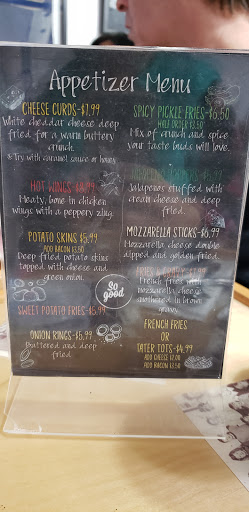 Appetizer Menu
CHEESE CURDS-$7.99
White cheddar cheese deep
fried for a warm buttery
crunch.
* Try with caramel sauce or honey
HOT WINGS-
Meaty, bone in chicken
wings with a peppery zing.
POTATO SKINS $5.99
ADD BACON $3.50
Deep fried potato skins
topped with cheese and
green onion.
SWEET POTATO FRIES-$5.99
ONION RINGS-$5.99
Battered and deep
fried.
SPICY PICKLE FRIES-$6.50
HALF ORDER $3.50
Mix of crunch and spice
your taste buds will love.
Jalapenos stuffed with
cream cheese and deep
fried.
MOZZARELLA STICKS-$6.99
Mozzarella cheese double
dipped and golden fried.
FRIES &
French fries with
mozzarella cheese
smothered in brown
gravy.
So
good
FRENCH FRIES
OR
TATER TOTS-$4.99
ADD CHEESE $2.00
ADD BACON $3.50